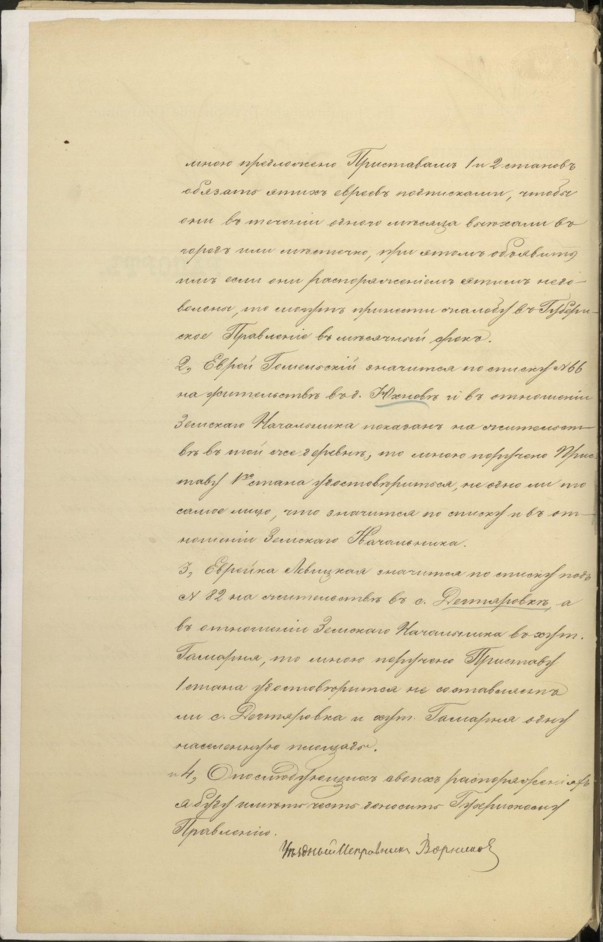 мною предложено Приставамъ 1 и 2 становъ
обязать этихъ евреевъ подписками, чтобы
они въ теченіи одного мѣсяца выѣхали въ
городъ или мѣстечко, при этомъ объявить
имъ если они распоряженіемъ этимъ недо-
вольны, то могутъ принести жалобу въ Губерн-
ское Правленіе въ мѣсячный срокъ.
2, Еврей Гомельскій значится по списку №66
на жительствѣ въ д. Юхновѣ и въ отношеніи
Земскаго Начальника показанъ на жительст-
вѣ въ той же деревнѣ, то мною поручено При-
ставу 1го стана удостовѣриться, не одно ли то
самое лицо, что значится по списку и въ от-
ношеніи Земскаго Начальника.
3, Еврейка Левицкая значится по списку подъ
№ 82 на жительствѣ въ с. Дегтяровкѣ, а
въ отношеніи Земскаго Начальника въ хут.
Гамарня, то мною поручено Приставу
1 стана удостовѣрится не составляетъ
ли с. Дегтяровка и хут. Гамарня одну
населенную площадь.
4, О послѣдующихъ своихъ распоряженіяхъ
я буду имѣть честь доносить Губернскому
Правленію.
Уѣздный Исправникъ